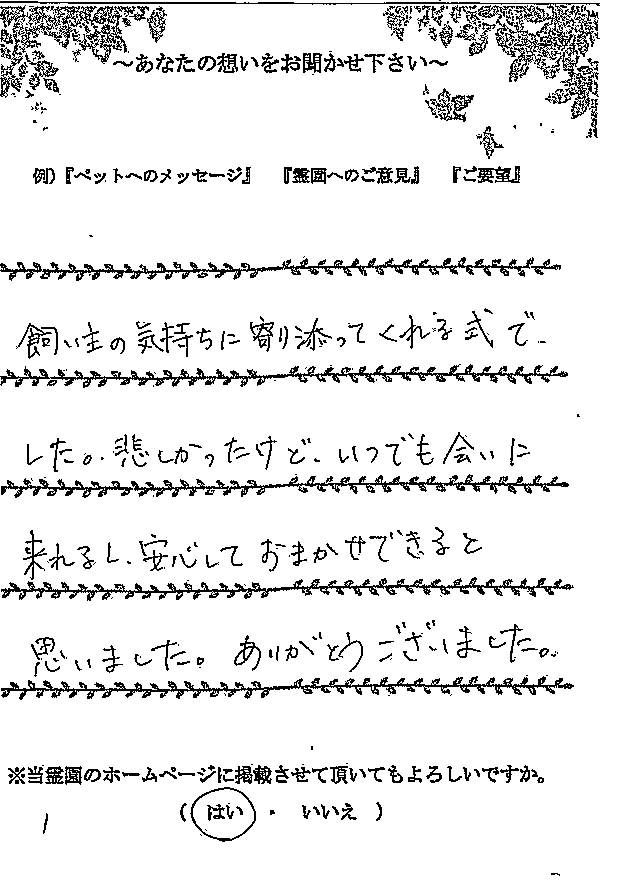 ～あなたの想いをお聞かせ下さい～
例)『ペットへのメッセージ』 『霊園へのご意見』 『ご要望』
飼い主の気持ちに寄り添ってくれる式で、
した。悲しかったけど、いつでも会いに
来れるし、安心しておまかせできると
思いました。ありがとうございました。
※当霊園のホームページに掲載させて頂いてもよろしいですか。
( はい ・ いいえ )